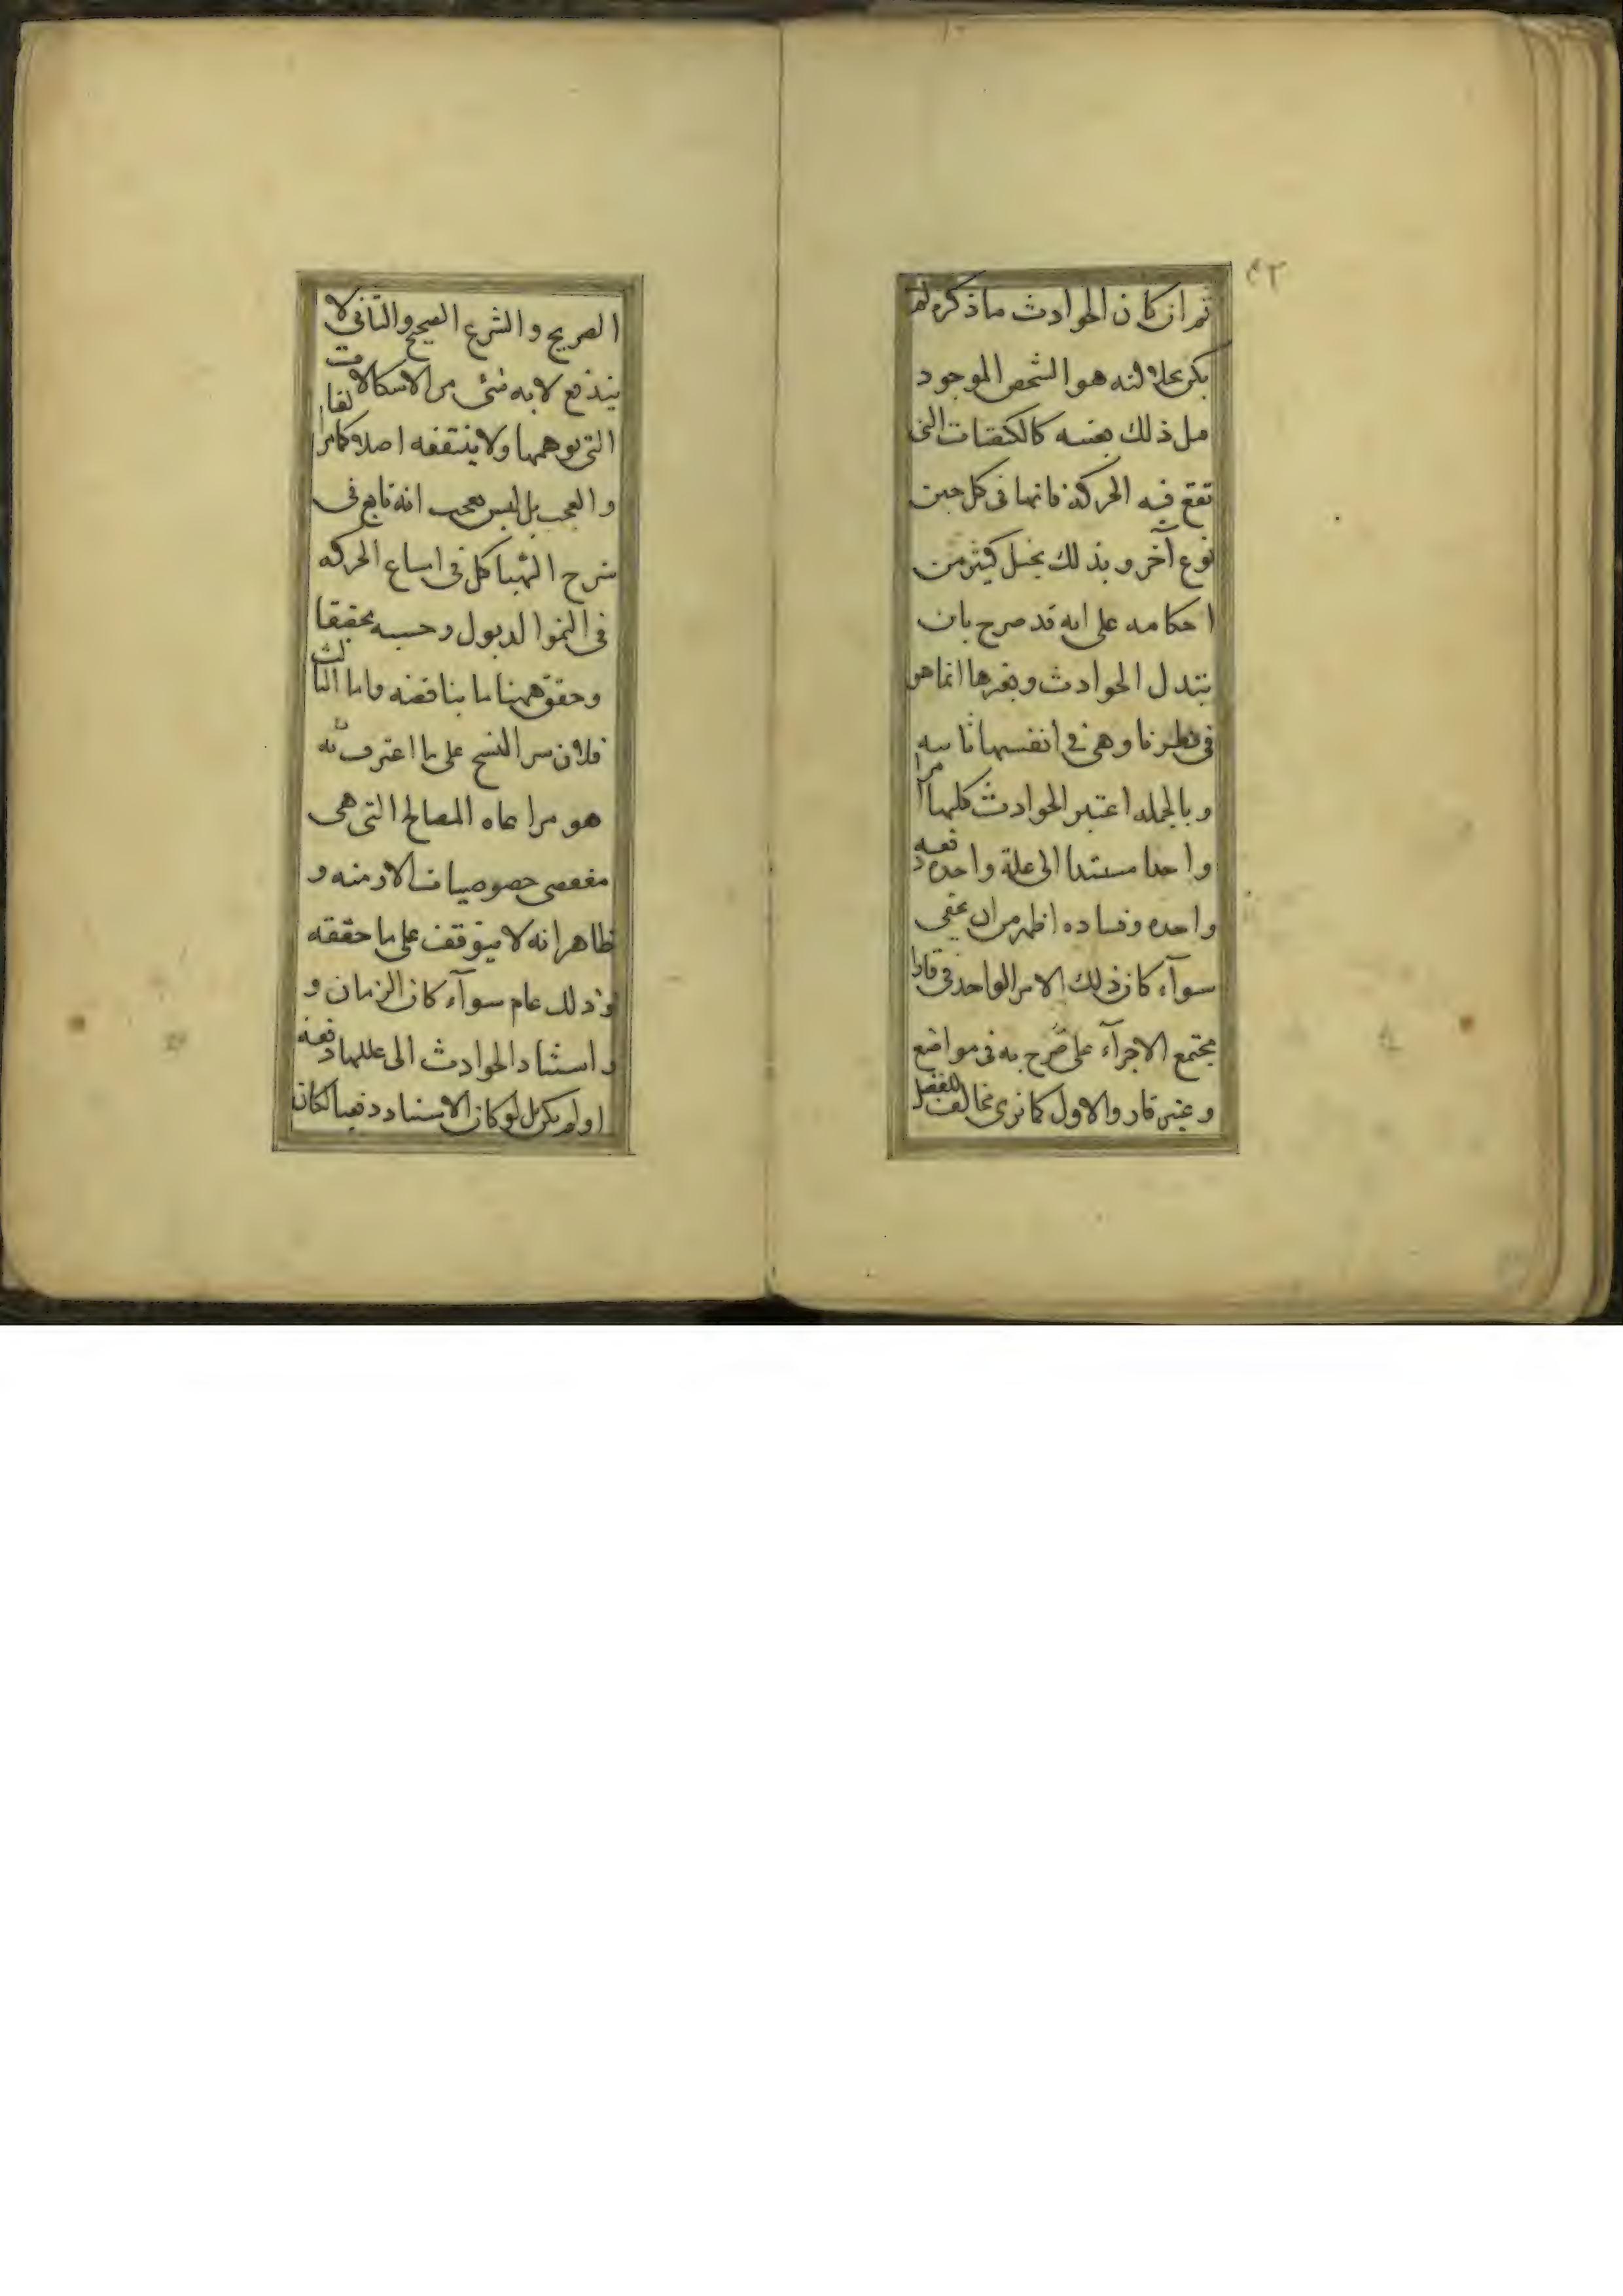 ثم ان كان الحوادث ما ذكره لم
يكن علاقته هو الشخص الموجود
مل ذلك بعينه كالكيفيات التي
تقع فيه الحركة فانها في كل حين
نوع آخر وبذلك يختل كثير من
احكامه على انه قد صرح بان
يتبدل الحوادث وتغيرها انما هو
في نظرنا وهي في انفسها ثابته
وبالجمله اعتبر الحوادث كلها امرا
واحدا مستندا الى علة واحده دفعه
واحده وفساده اظهر من ان يخفى
سوآء كان ذلك الامر الواحد في قارا
مجتمع الاجزآء على صرح به في مواضع
وغير قار والاول كما ترى مخالف للعقل
الصريح والشرع الصحيح والثاني لا
يندفع لا به شئ من الاشكالات
التي توهمها ولا ينتفعه اصلا كما مر انفا
والعجب بل ليس بعجب انه تابع في
شرح الهياكل في اساع الحركه
في النمو الذبول وحسبه تحقيقا
وحقق ههنا ما يناقضه واما الثالث
فلان سر النسخ على ما اعترف به
هو مراعاه المصالح التي هي
مقتضى خصوصيات الازمنه و
ظاهر انه لا يتوقف على ما حققه
وذلك عام سوآء كان الزمان و
واستناد الحوادث الى عللها دفعه
اولم يكن بل لو كان الاستناد دفعيا لكان